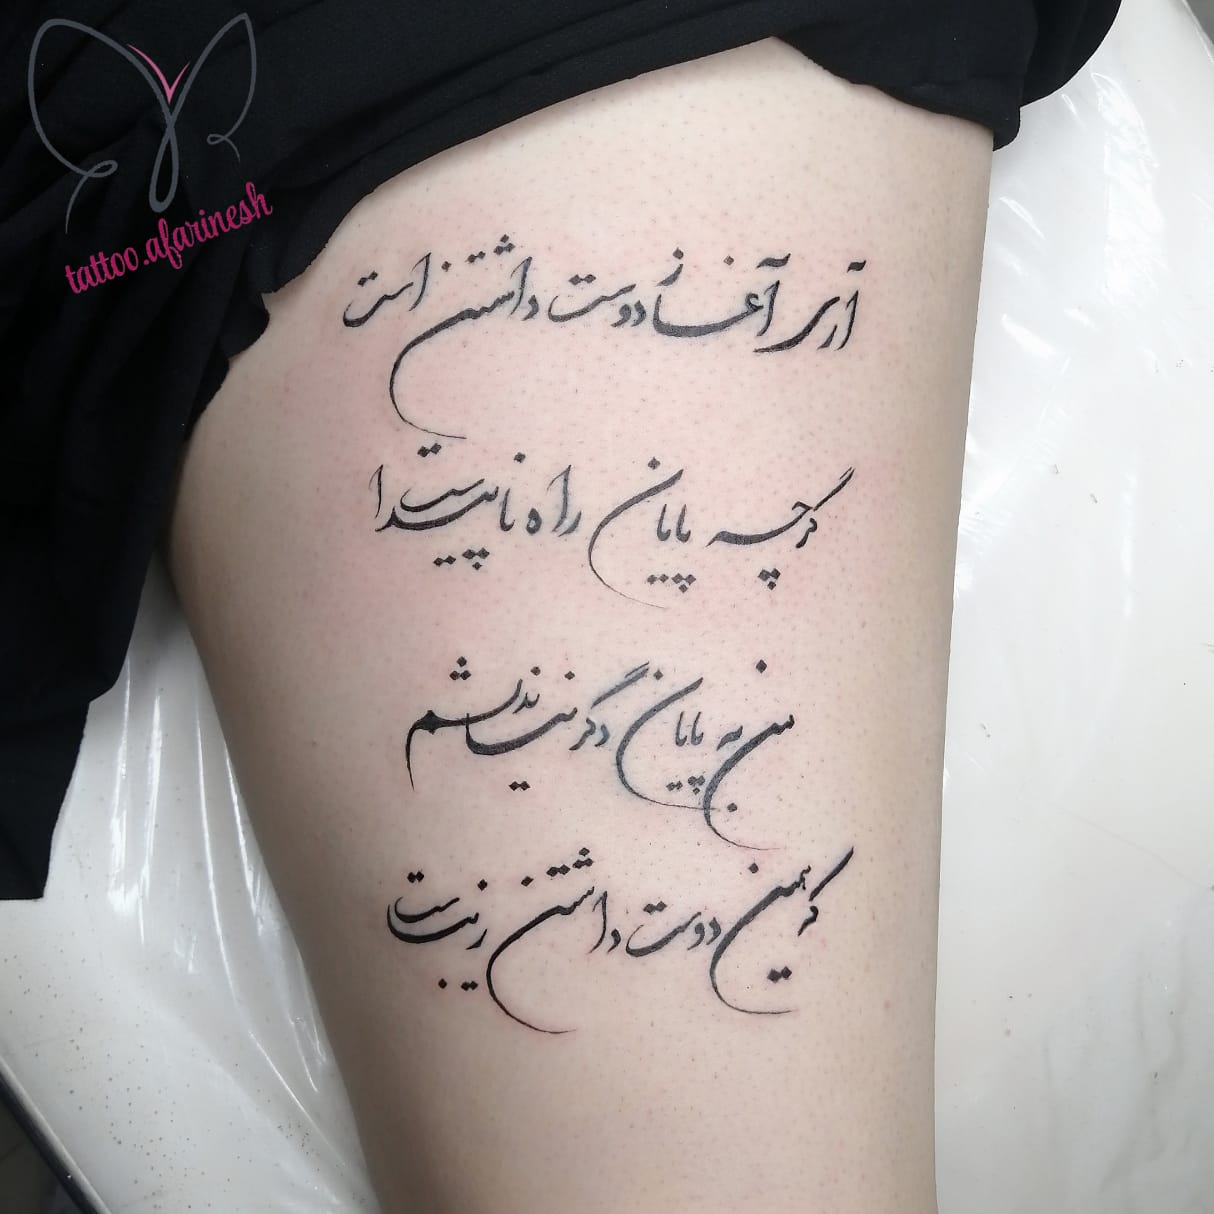 tattoo.afarinesh
آری آغاز دوست داشتن است
گرچه پایان راه ناپیداست
من به پایان دگر نیندیشم
که همین دوست داشتن زیباست